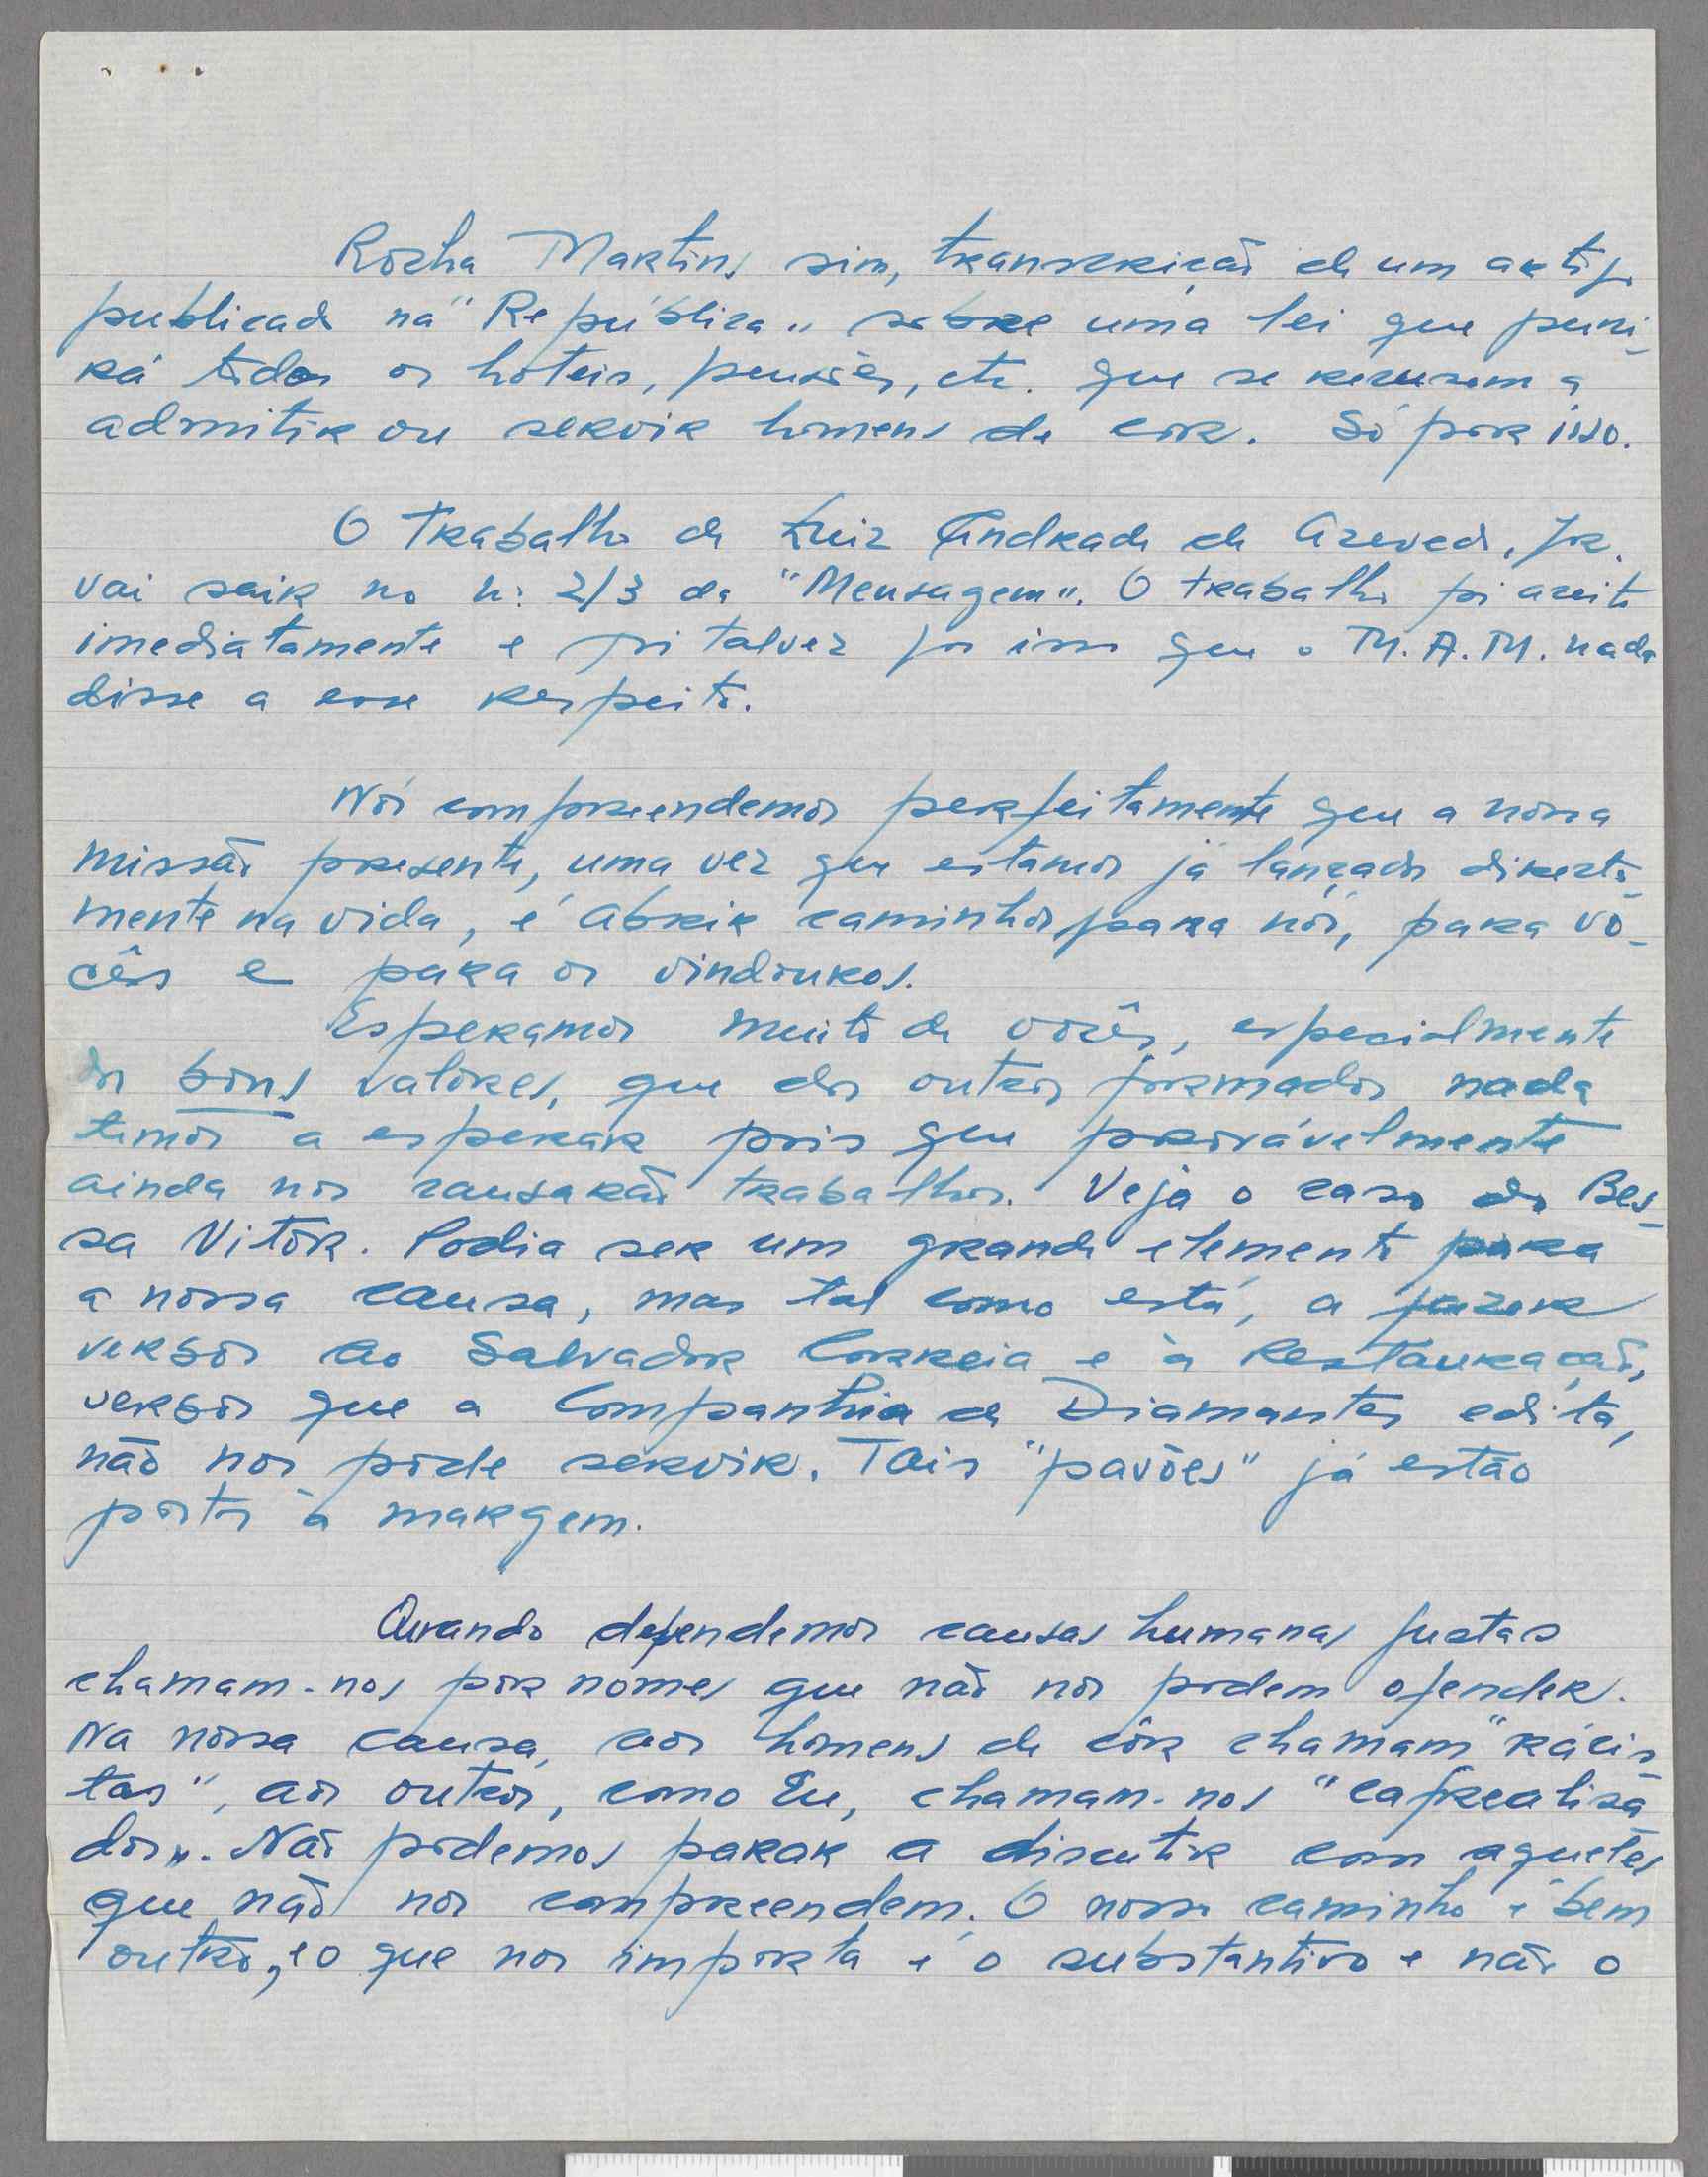 Rocha Martins sim, transcrição de um artigo
publicado na "República" sobre uma lei que puni-
rá todos os hoteis, pensões, etc. que se recusem a
admitir ou servir homens de cor. Só por isso.
O trabalho de Luiz Andrade de Azevedo, Jr.
vai sair no n: 2/3 da "Mensagem". O trabalho foi aceite
imediatamente e foi talvez por isso que o M.A.M. nada
disse a esse respeito.
Nós compreendemos perfeitamente que a nossa
missão presente, uma vez que estamos já lançados directa-
mente na vida, é abrir caminhos para nós, para vo-
cês e para os vindouros.
Esperamos muito de vocês, especialmente
dos bons valores, que dos outros formados nada
temos a esperar pois que provávelmente
ainda nos causarão trabalhos. Veja o caso do Bes-
sa Vitor. Podia ser um grande elemento para
a nossa causa, mas tal como está, a fazer
versos ao Salvador Correia e à Restauração,
versos que a Companhia de Diamantes edita,
não nos pode servir. Tais "pavões" já estão
postos à margem.
Quando defendemos causas humanas justas
chamam-nos por nomes que não nos podem ofender.
Na nossa causa, aos homens de côr chamam "rácis-
tas", aos outros, como Eu, chamam-nos "cafrealisa-
dos". Não podemos parar a discutir com aqueles
que não nos compreendem. O nosso caminho é bem
outro, e o que nos importa é o substantivo e não o